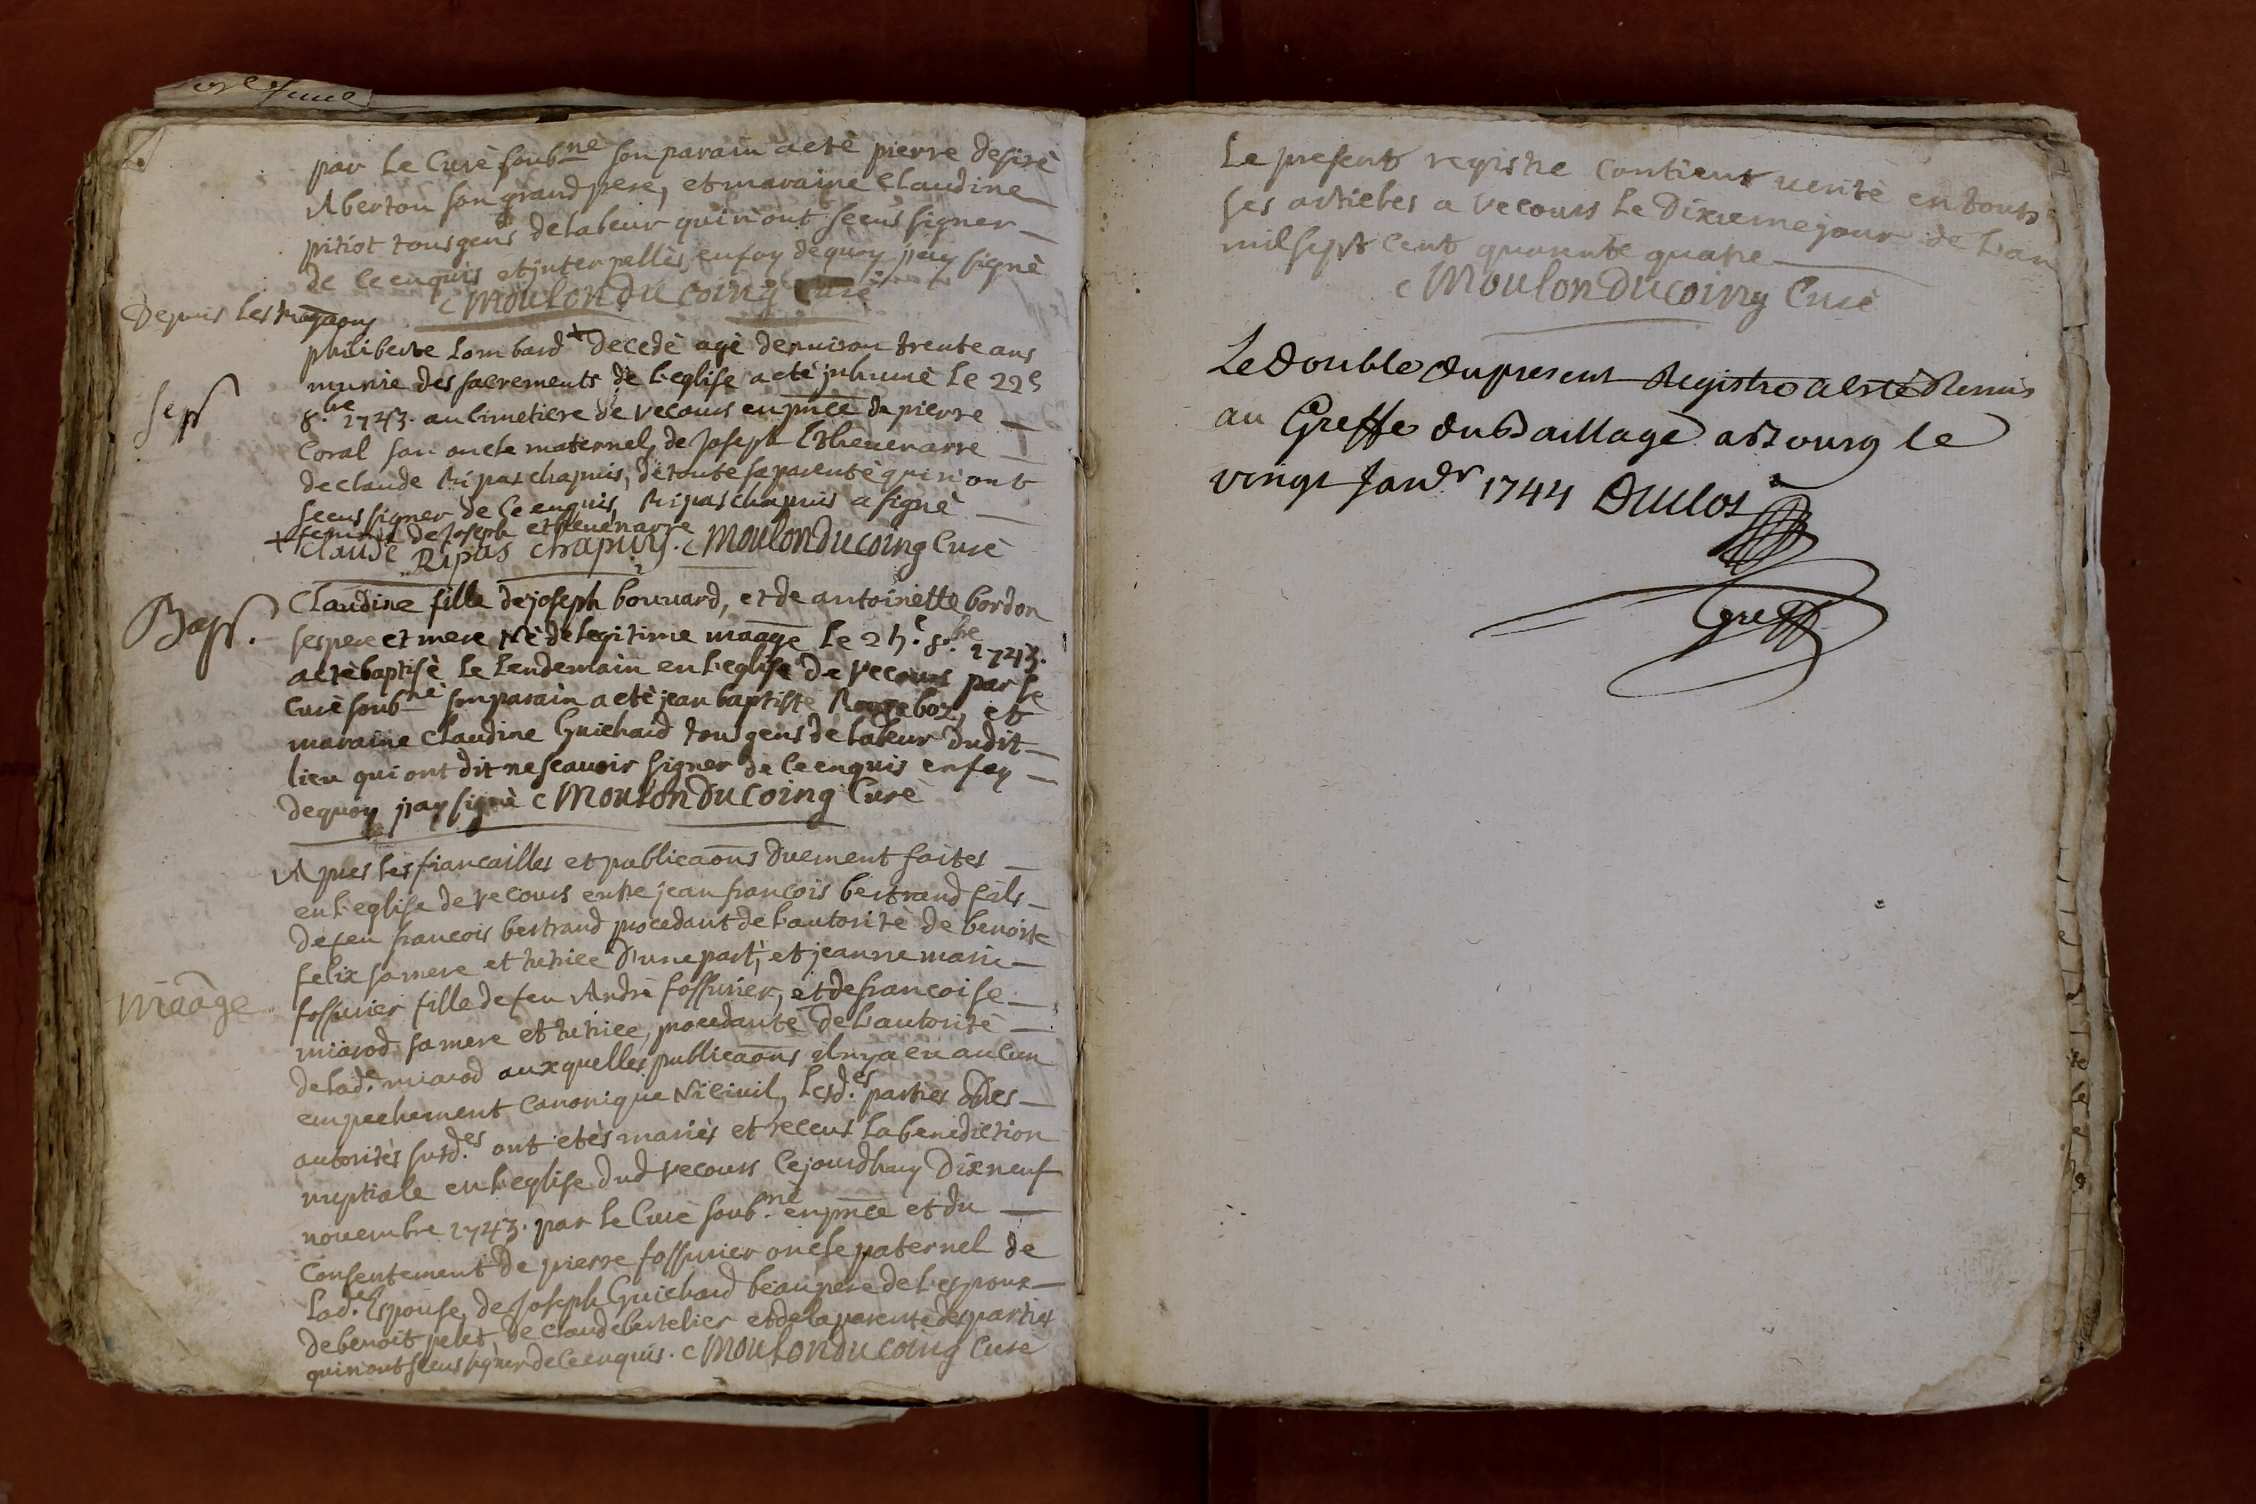 par le Curé soub.né son parain a eté pierre desiré
Aberton son grand pere, et maraine Claudine
pitiot tous gens de labeur qui n'ont sceus signer
de ce enquis et interpellés, en foy de quoy j'ay signé
C Moulon Du Coing Curé
Depuis les
philiberte Lombard + decedé agé d'environ trente ans
munie des sacrements de l'eglise a eté jnhumé le 22e
8.bre 1743. au Cimetiere de Vecours en pnce de pierre
Sep.
Coral son oncle maternel, de Joseph Ethevenarre
de claude Ripas chapuis, de toute sa parenté qui n'ont
sceus signer de ce enquis, Ripas chapuis a signé
+ femme de Joseph ethevenarre
Claude Ripas Chapuys. C Moulon Du Coing Curé
Bap.
Claudine fille de joseph bouvard, et de antoinette bordon
ses pere et mere Né de legitime maage le 25.e 8.bre 1743.
a eté baptisé le lendemain en l'eglise de Vecours par le
Curé soub.né son parain a eté jean baptiste Rougeboz, et
maraine Claudine Guichard tous gens de labeur dudit
lieu qui ont dit ne scavoir signer de ce enquis en foy
de quoy j'ay signé C Moulon Du Coing Curé
Apres les fiancailles et publicaons duement faites
en l'eglise de Vecours entre jean françois bertrand fils
de feu françois bertrand procedant de l'autorité de benoite
felix sa mere et tutrice d'une part, et jeanne marie
maage
fossurier fille de feu André fossurier, et de françoise
miarod sa mere et tutrice, procedante de l'autorité
de lad.e miarod aux quelles publicaons il n'y a eu aucun
empechement Canonique Ni Civil, lesd.es parties
autorités susd.es ont etés mariés et receus la benediction
nuptiale en l'eglise dud Vecours Cejourdhuy Dixneuf
novembre 1743. par le Curé soub.né en pnce et du
Consentement de pierre fossurier oncle paternel de
lad.e Espouse, de Joseph Guichard beaupere de l'espoux
de benoit pelet, de Claude bertelier et de la parenté des parties
qui n'ont sceus signer de ce enquis. C Moulon Du Coing Curé
Le present registre Contient verité en touts
ses articles a Vecours le Dixieme jour de l'an
mil sept Cent quarente quatre
C Moulon Du Coing Curé
Le double du present Registre a esté Remis
au Greffe du Baillage a Bourg le
vingt Janvr 1744
Greff.